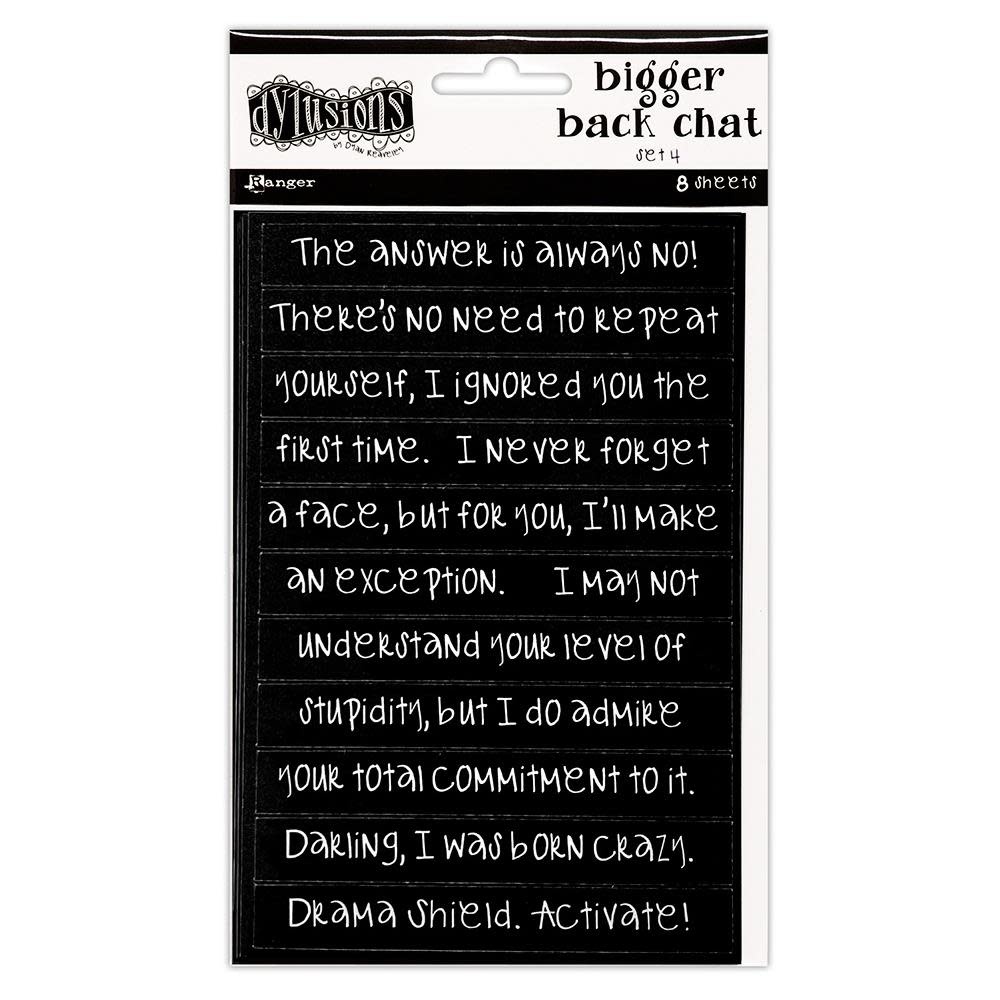 dylusions
by Dyan Reaveley
bigger
back chat
set 4
Ranger
8 sheets
The answer is always no!
There's no need to repeat
yourself, I ignored you the
first time. I never forget
a face, but for you, I'll make
an exception. I may not
understand your level of
stupidity, but I do admire
your total commitment to it.
Darling, I was born crazy.
Drama Shield. Activate!